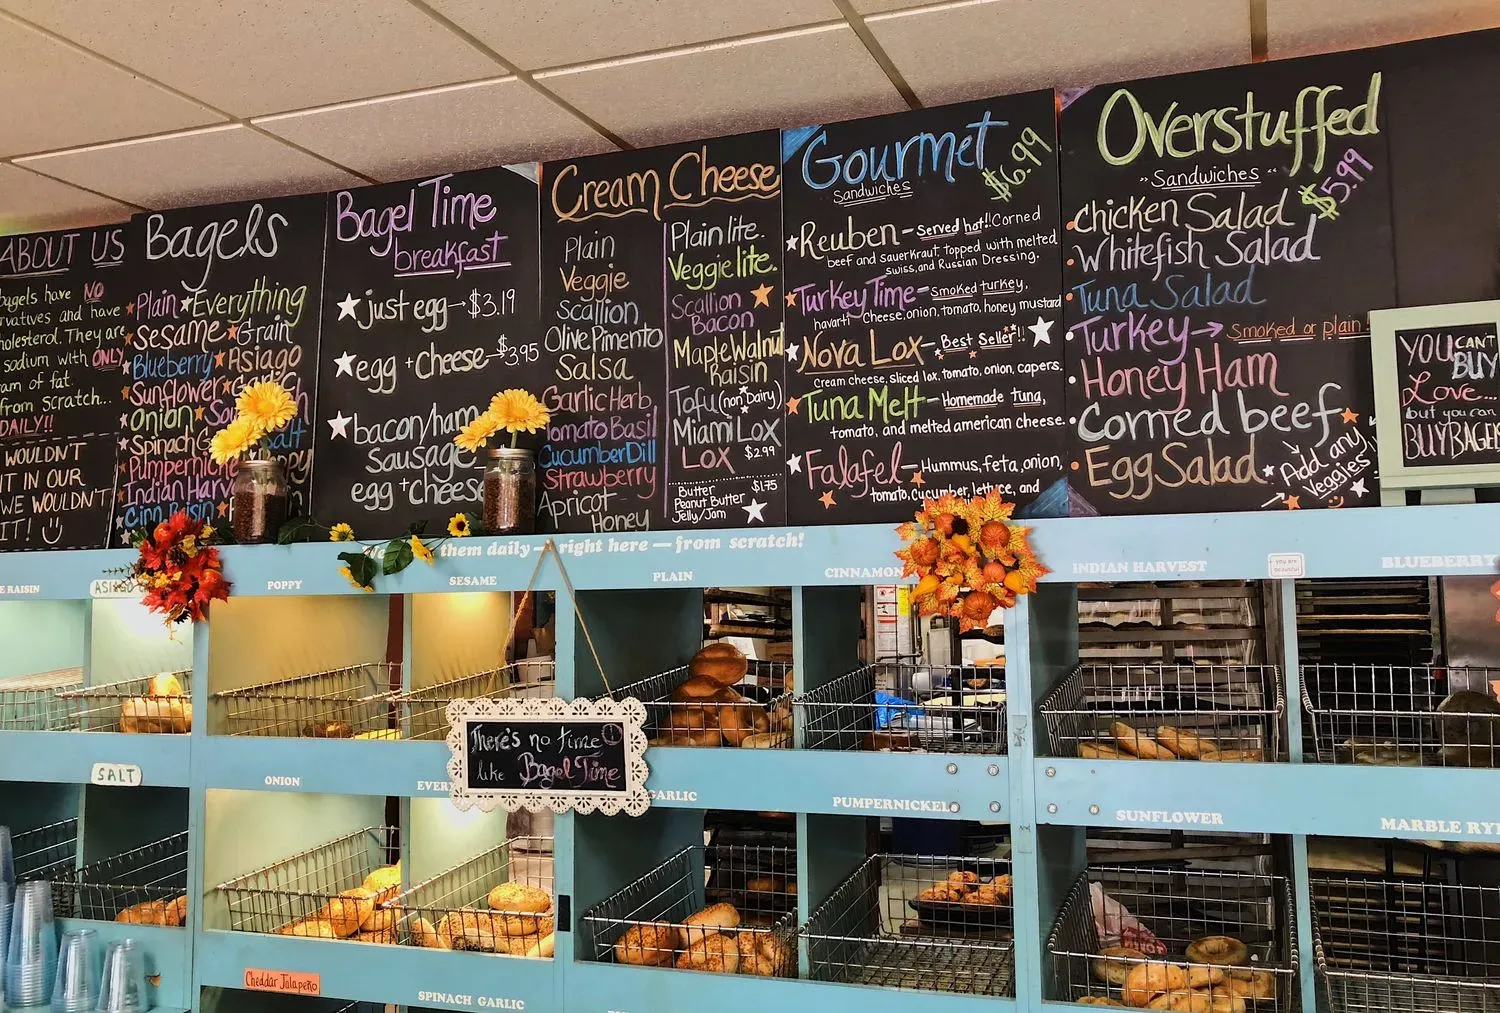 ABOUT US
bagels have NO
vatives and have
holesterol. They are
sodium with ONLY
am of fat.
from scratch...
DAILY!!
WOULDN'T
IT IN OUR
WE WOULDN'T
IT!
Bagels
Plain Everything
Sesame Grain
Blueberry Asiago
Sunflower
Onion
Spinach
Pumpernickel
Indian Harve
Cinn Raisin
Bagel Time
breakfast
just egg → $3.19
egg + cheese → $3.95
bacon/ham
Sausage
egg + cheese
Cream Cheese
Plain
Veggie
Scallion
Olive Pimento
Salsa
Garlic Herb
Tomato Basil
Cucumber Dill
Strawberry
Apricot
Honey
Plain lite.
Veggie lite.
Scallion
Bacon
Maple Walnut
Raisin
Tofu (non Dairy)
Miami Lox
LOX $2.99
Butter $1.75
Peanut Butter
Jelly/Jam
Gourmet $6.99
Sandwiches
Reuben – Served hot!! Corned
beef and sauerkraut, topped with melted
swiss, and Russian Dressing.
Turkey Time – Smoked turkey,
havarti Cheese, onion, tomato, honey mustard
Nova Lox – Best Seller!!
Cream cheese, sliced lox, tomato, onion, capers.
Tuna Melt – Homemade tuna,
tomato, and melted american cheese.
Falafel – Hummus, feta, onion,
tomato, cucumber, lettuce, and
Overstuffed
"Sandwiches" $5.99
Chicken Salad
Whitefish Salad
Tuna Salad
Turkey → Smoked or plain!
Honey Ham
Corned beef
Egg Salad
Add any
Veggies!
YOU CAN'T
BUY
Love...
but you can
BUY BAGELS
them daily — right here — from scratch!
E RAISIN
ASIAGO
POPPY
SESAME
PLAIN
CINNAMON
INDIAN HARVEST
you are
beautiful
BLUEBERRY
There's no time
like Bagel Time
SALT
ONION
EVERY
GARLIC
PUMPERNICKEL
SUNFLOWER
MARBLE RYE
Cheddar Jalapeño
SPINACH GARLIC